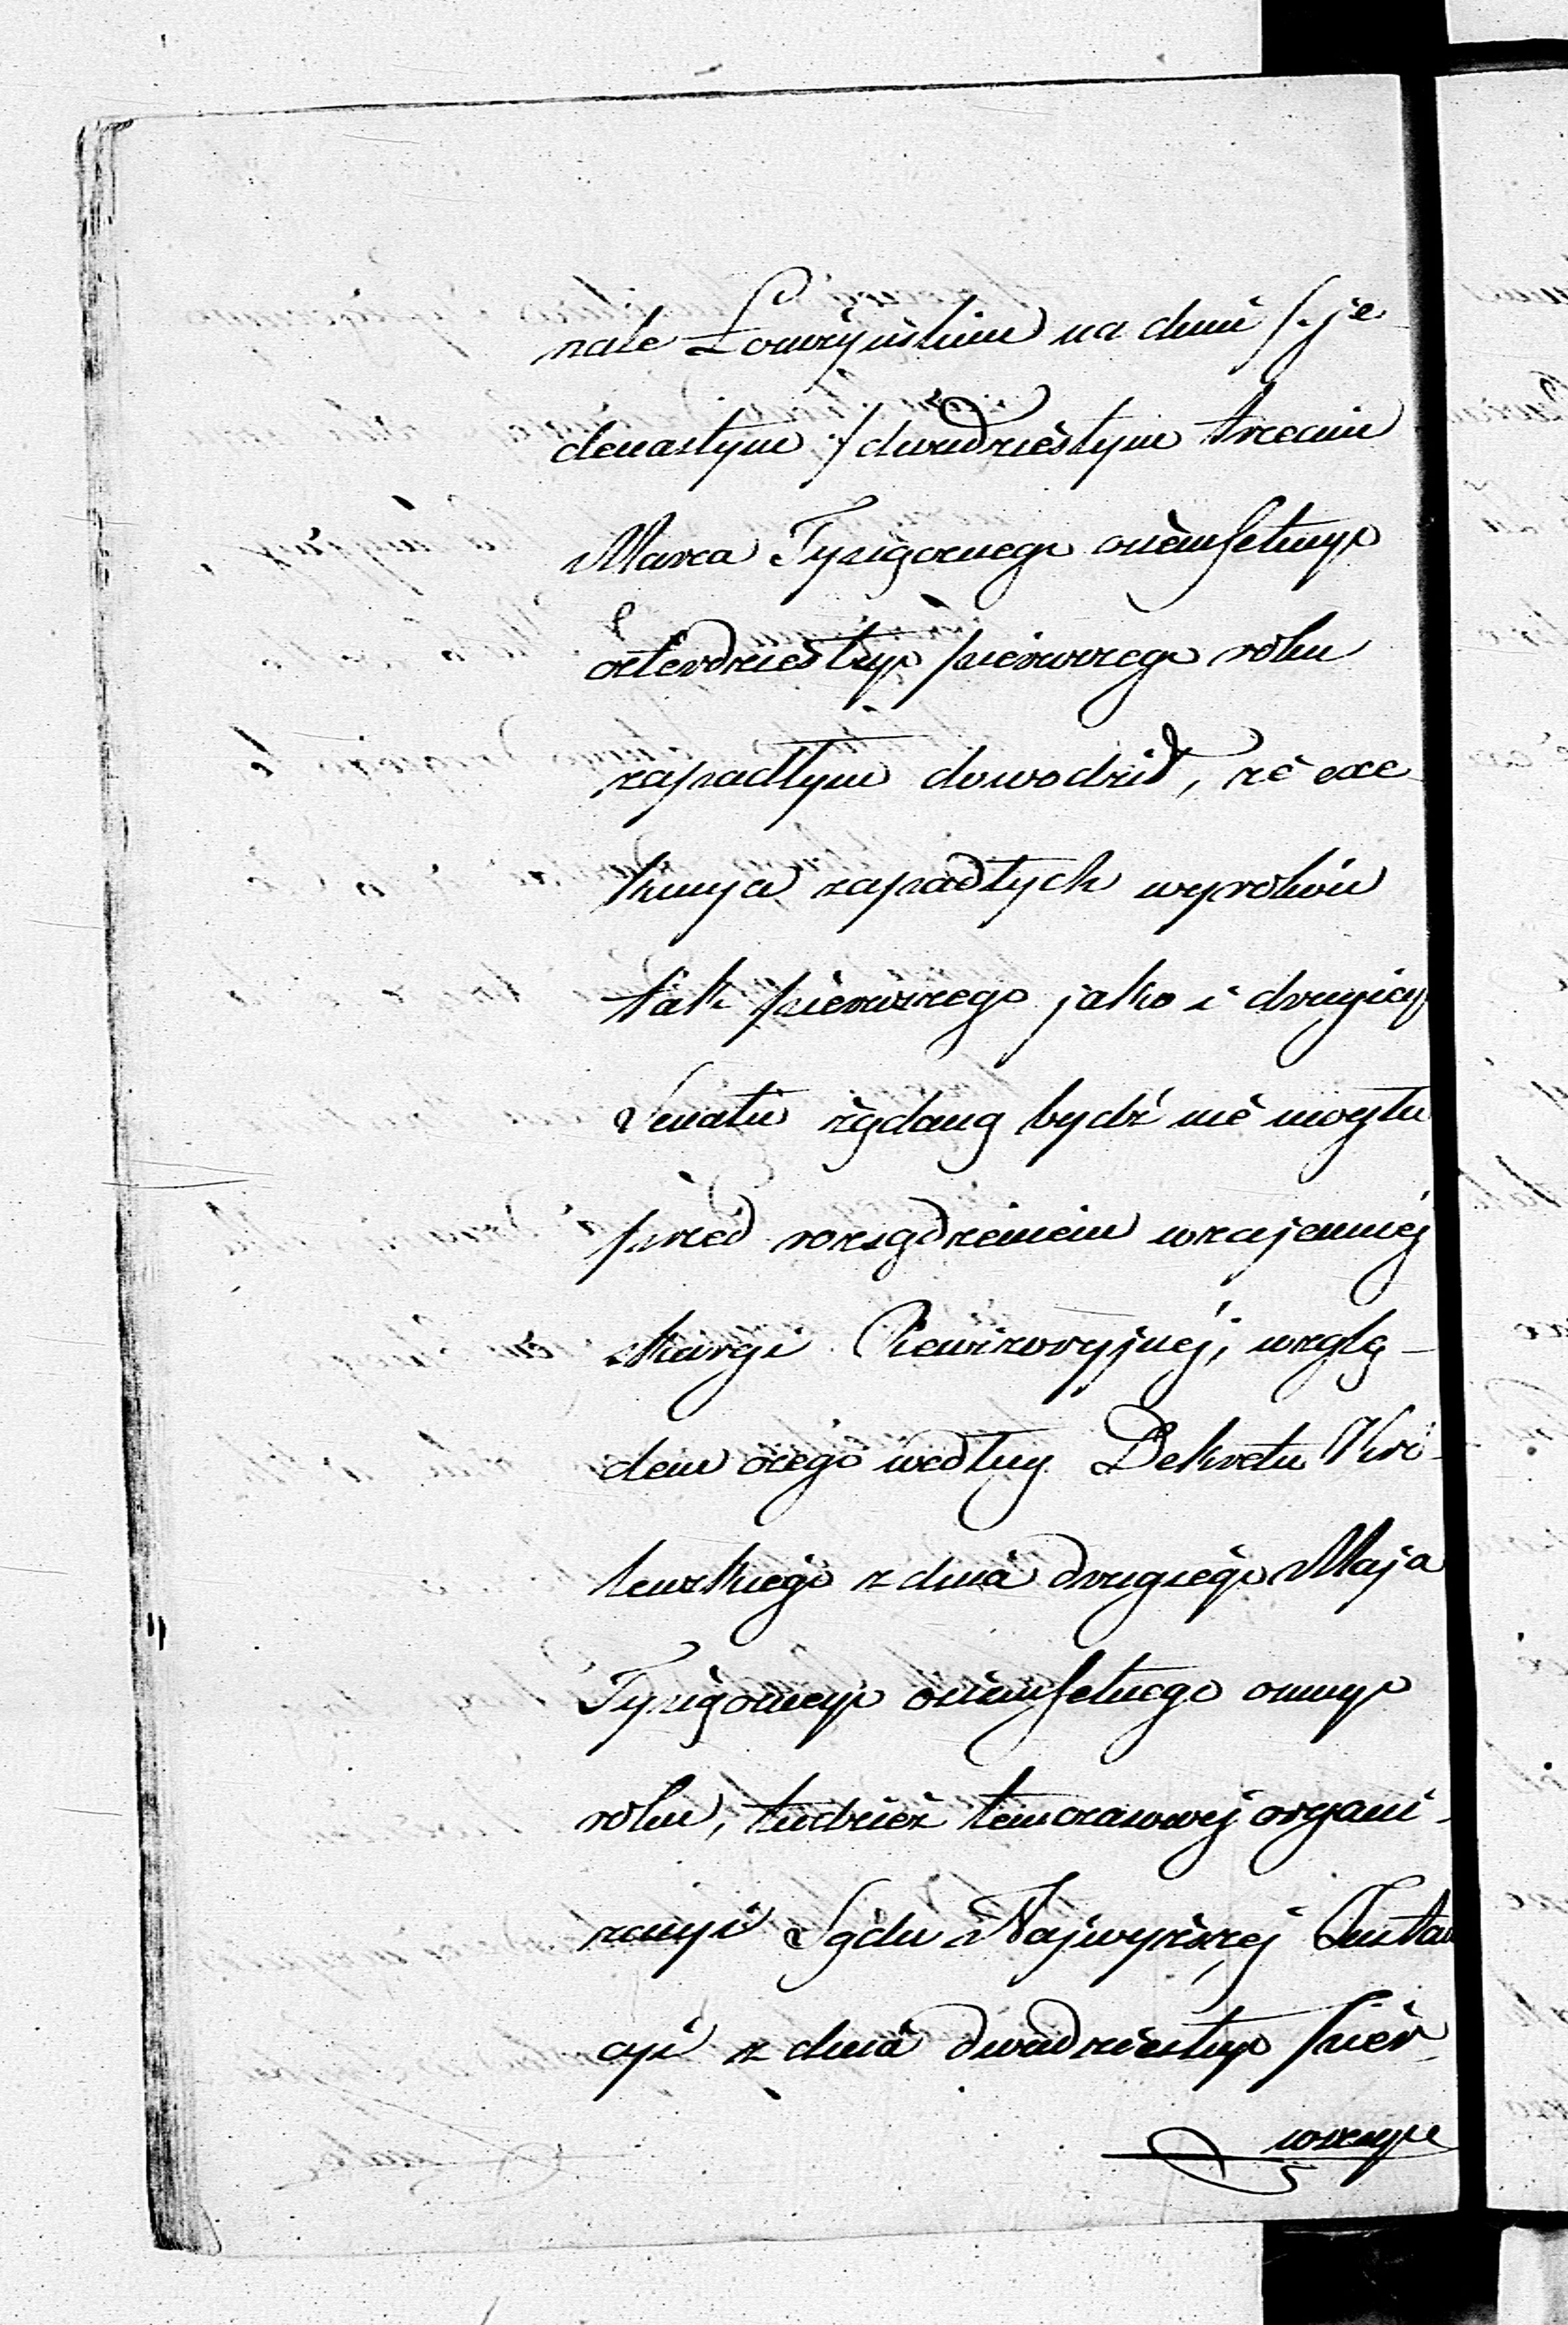 nale Łowczyńskim na dniu /: je
denastym :/ dwudziestym trzecim
Marca Tysiącznego ośmsetnego
czterdziestego pierwszego roku
zapadłym dowodził, że exe-
kucya zapadłych wyroków
tak pierwszego jako i drugiego
Senatu żądaną bydź nie mogła
przed rozsądzeniem wzajemnéj
skargi Rewizoryjnéj, wzglę-
dem czego według Dekretu Kró-
lewskiego z dnia drugiego Maja
Tysiącznego ośmsetnego ósmego
roku, tudzież temczasowéj organi-
zacyi Sądu Najwyższéj Instan
cyi z dnia dwudziestego pier-
wszego